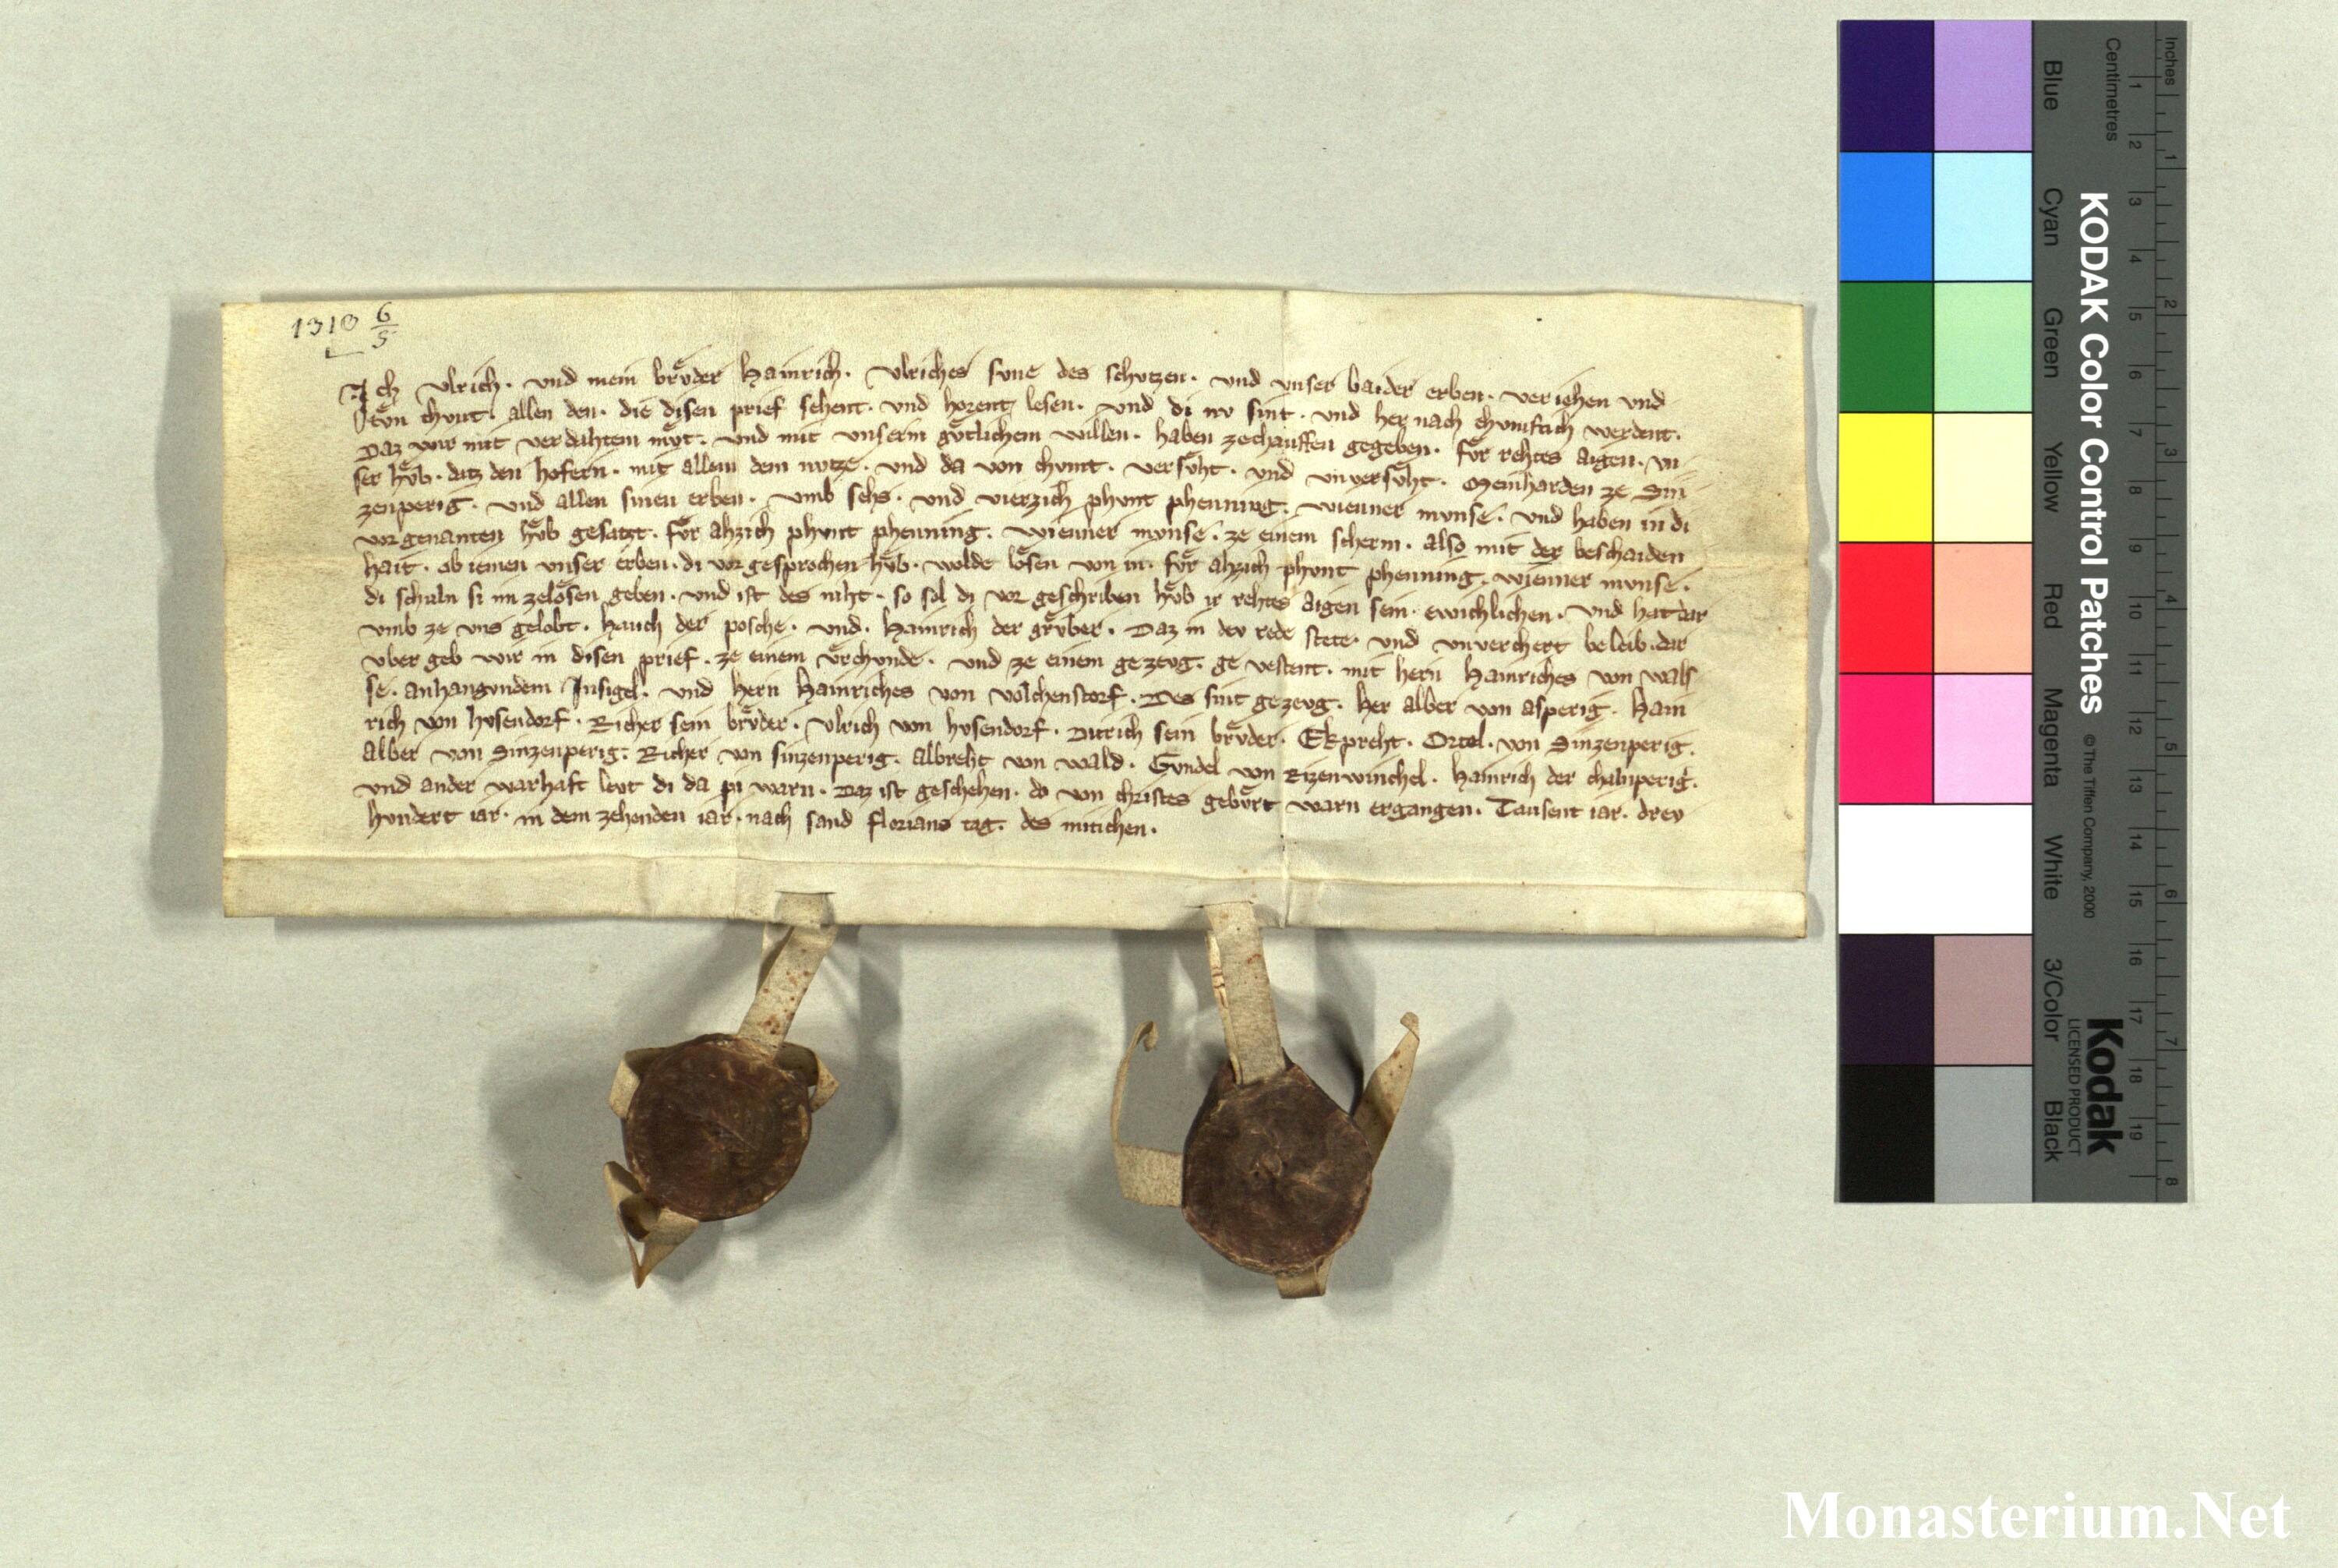 1310 6/5
Ich Vlrich · vnd mein brůder Hainrich · Vlriches svne des schvtzen · vnd vnser baider erben · veriehen vnd
tůn chvnt · allen den · die disen prief sehent · vnd horent lesen · vnd di nv sint · vnd her nach chvmftich werdent ·
Daz wir mit verdahtem můt · vnd mit vnserm gůtlichem willen · haben zechauffen gegeben · fůr rehtes aigen · vn
ser hůb · datz den hofern · mit allem dem nvtze · vnd da von chvmt · versůht · vnd vnversůht · Meinharden ze Sin
zenperig · vnd allen sinen erben · vmb sehs · vnd vierzich phvnt phenning · wienner mvnse · vnd haben in di
vorgenanten hůb gesatzt · fůr ahzich phvnt phenning · wienner mvnse · ze einem scherm · also mit der beschaiden
hait · ob iemen vnser erben · di vor gesprochen hůb · wolde lősen von in · fůr ahzich phvnt phenning · wienner mvnse ·
di schuln si im zelősen geben · vnd ist des niht · so sol di vor geschriben hůb ir rehtes aigen sein · ewichlichen · vnd hat dar
vmb ze vns gelobt · Hauch der posche · vnd · Hainrich der grůber · Daz in dev rede stete · vnd vnverchert beleib · dar
vber geb wir in disen prief · ze einem vrchvnde · vnd ze einem gezevg · ge vestent · mit hern Hainriches von wals
se · anhangvndem Insigel · vnd hern Hainriches von volchenstorf · Des sint gezevg · her alber von asperig · Hain
rich von hvsendorf · Richer sein brůder · Vlrich von hvsendorf · Ditrich sein brůder · Ekpreht · Ortel · von Sinzenperig ·
Alber von Sinzenperig · Richer von sinzenperig · Albreht von wald · Gvndel von Rizenwinchel · Hainrich der chalnperig ·
vnd ander warhaft levt di da pi warn · Daz ist geschehen · do von christes gebůrt warn ergangen · Tausent iar · drev
hvndert iar · in dem zehenden iar · nach sand florians tag · des mitichen ·
KODAK Color Control Patches
© The Tiffen Company, 2000
Kodak
LICENSED PRODUCT
Blue
Cyan
Green
Yellow
Red
Magenta
White
3/Color
Black
Inches
1 2 3 4 5 6 7 8
Centimetres
1 2 3 4 5 6 7 8 9 10 11 12 13 14 15 16 17 18 19
Monasterium.Net